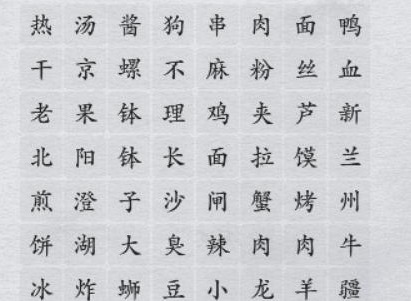 热 汤 酱 狗 串 肉 面 鸭
干 京 螺 不 麻 粉 丝 血
老 果 钵 理 鸡 夹 芦 新
北 阳 钵 长 面 拉 馍 兰
煎 澄 子 沙 闸 蟹 烤 州
饼 湖 大 臭 辣 肉 肉 牛
冰 炸 蛳 豆 小 龙 羊 疆